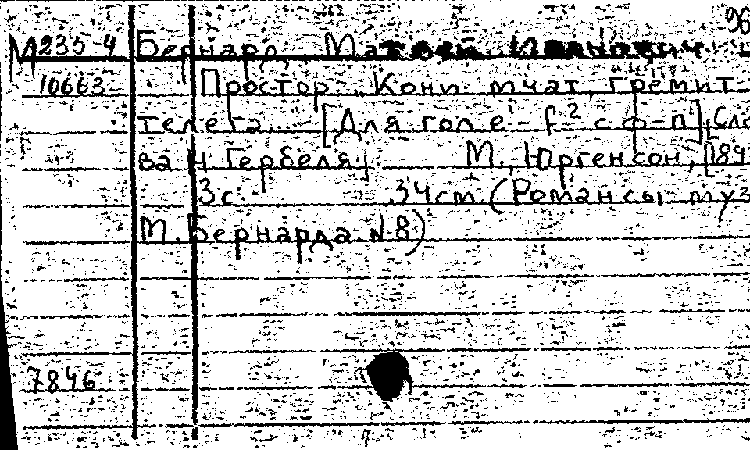 96
М235-4 Бернард, Матвей Иванович
10663 Простор... Кони мчат, гремит
телега... [Для гол e¹-f² с ф-п] Сло
ва Н Гербеля. М., Юргенсон, [184
3с. 34см (Романсы муз
М. Бернарда. №8)
7846